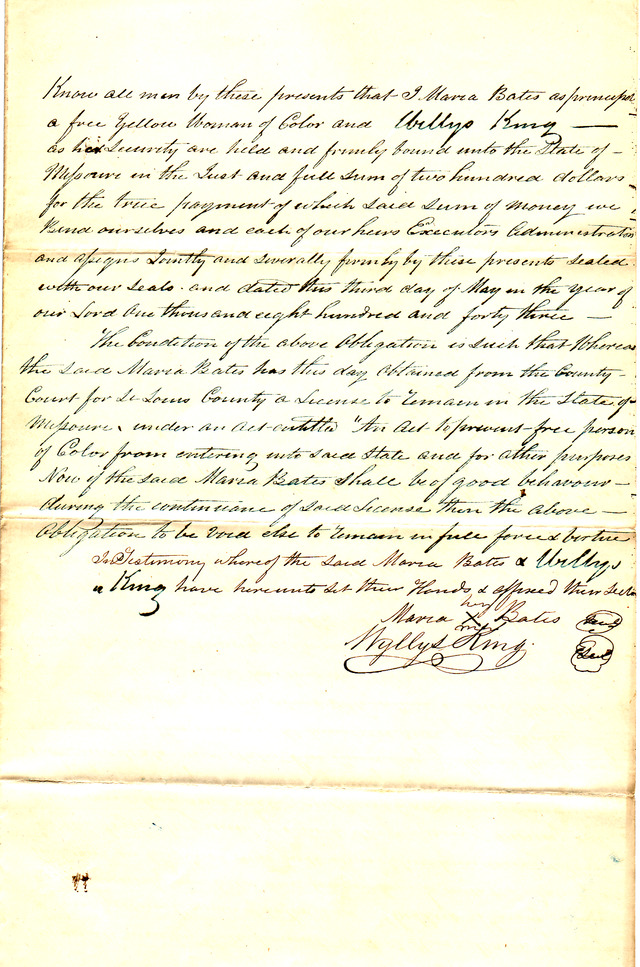 Know all men by these presents that I Maria Bates as principal
a free Yellow Woman of Color and Wyllys King —
as her Security are held and firmly bound unto the State of —
Missouri in the Just and full Sum of two hundred dollars
for the true payment of which said sum of money we
Bind ourselves and each of our heirs Executors Administrators
and assigns Jointly and severally firmly by these presents sealed
with our seals. and dated this third day of May in the Year of
our Lord One thousand eight hundred and forty three —
The Condition of the above Obligation is such that Whereas
the said Maria Bates has this day Obtained from the County
Court for St Louis County a License to remain in the State of
Missouri, under an act entitled "An Act to prevent free person
of Color from entering into said State and for other purposes
Now if the said Maria Bates shall be of good behaviour —
during the continuance of said License then the above —
Obligation to be void else to remain in full force & virtue
In Testimony whereof the said Maria Bates & Wyllys
King have hereunto set their Hands & affixed their Seals
her
Maria X Bates Seal
mark
Wyllys King. Seal